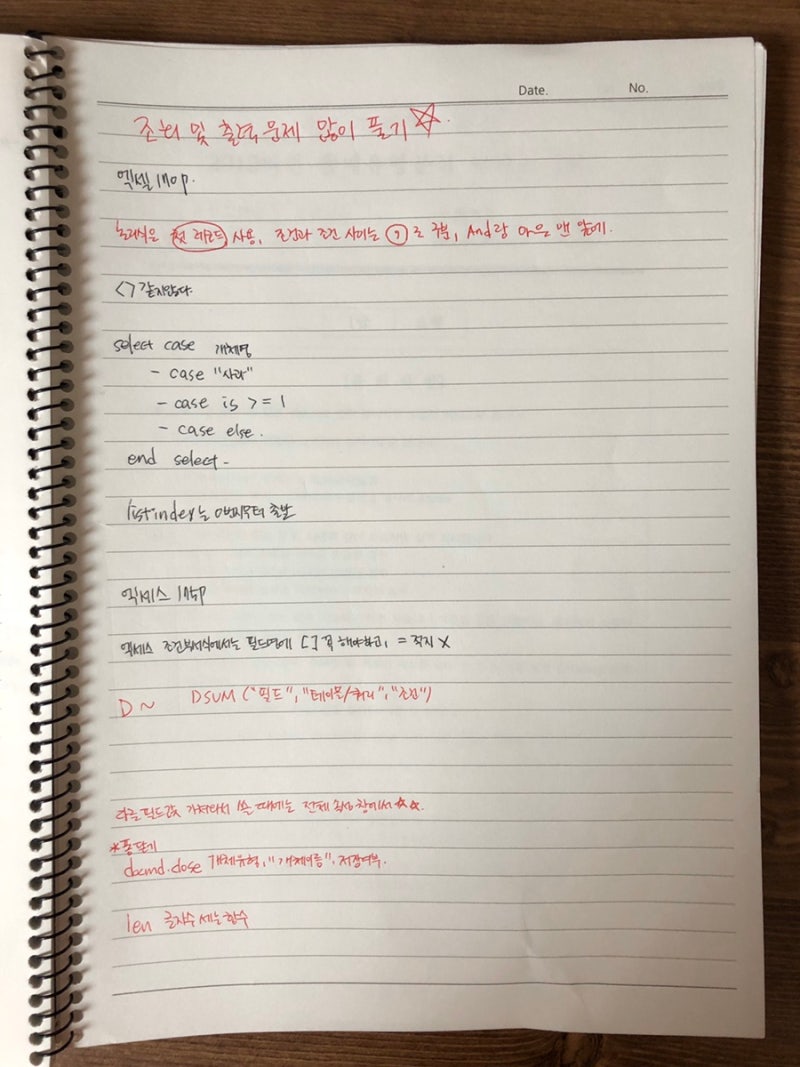 Date. No.
조회 및 출력문제 많이 풀기 ☆.
엑셀 170p.
논리식은 첫 레코드 사용, 조건과 조건 사이는 , 로 구분, And랑 아웃 맨 앞에.
<> 같지않다.
select case 개체명
- case "사과"
- case is >= 1
- case else.
end select-
listindex는 0번지부터 출발
엑세스 175p
엑세스 조건부서식에서는 필드명에 [ ] 꼭 해야하고, = 적지 X
D~ DSUM ("필드", "테이블/쿼리", "조건")
다른 필드값 가져와서 쓸 때에는 전체 속성 창에서 ☆☆.
*폼닫기
docmd.close 개체유형, "개체이름", 저장여부.
len 글자수 세는 함수